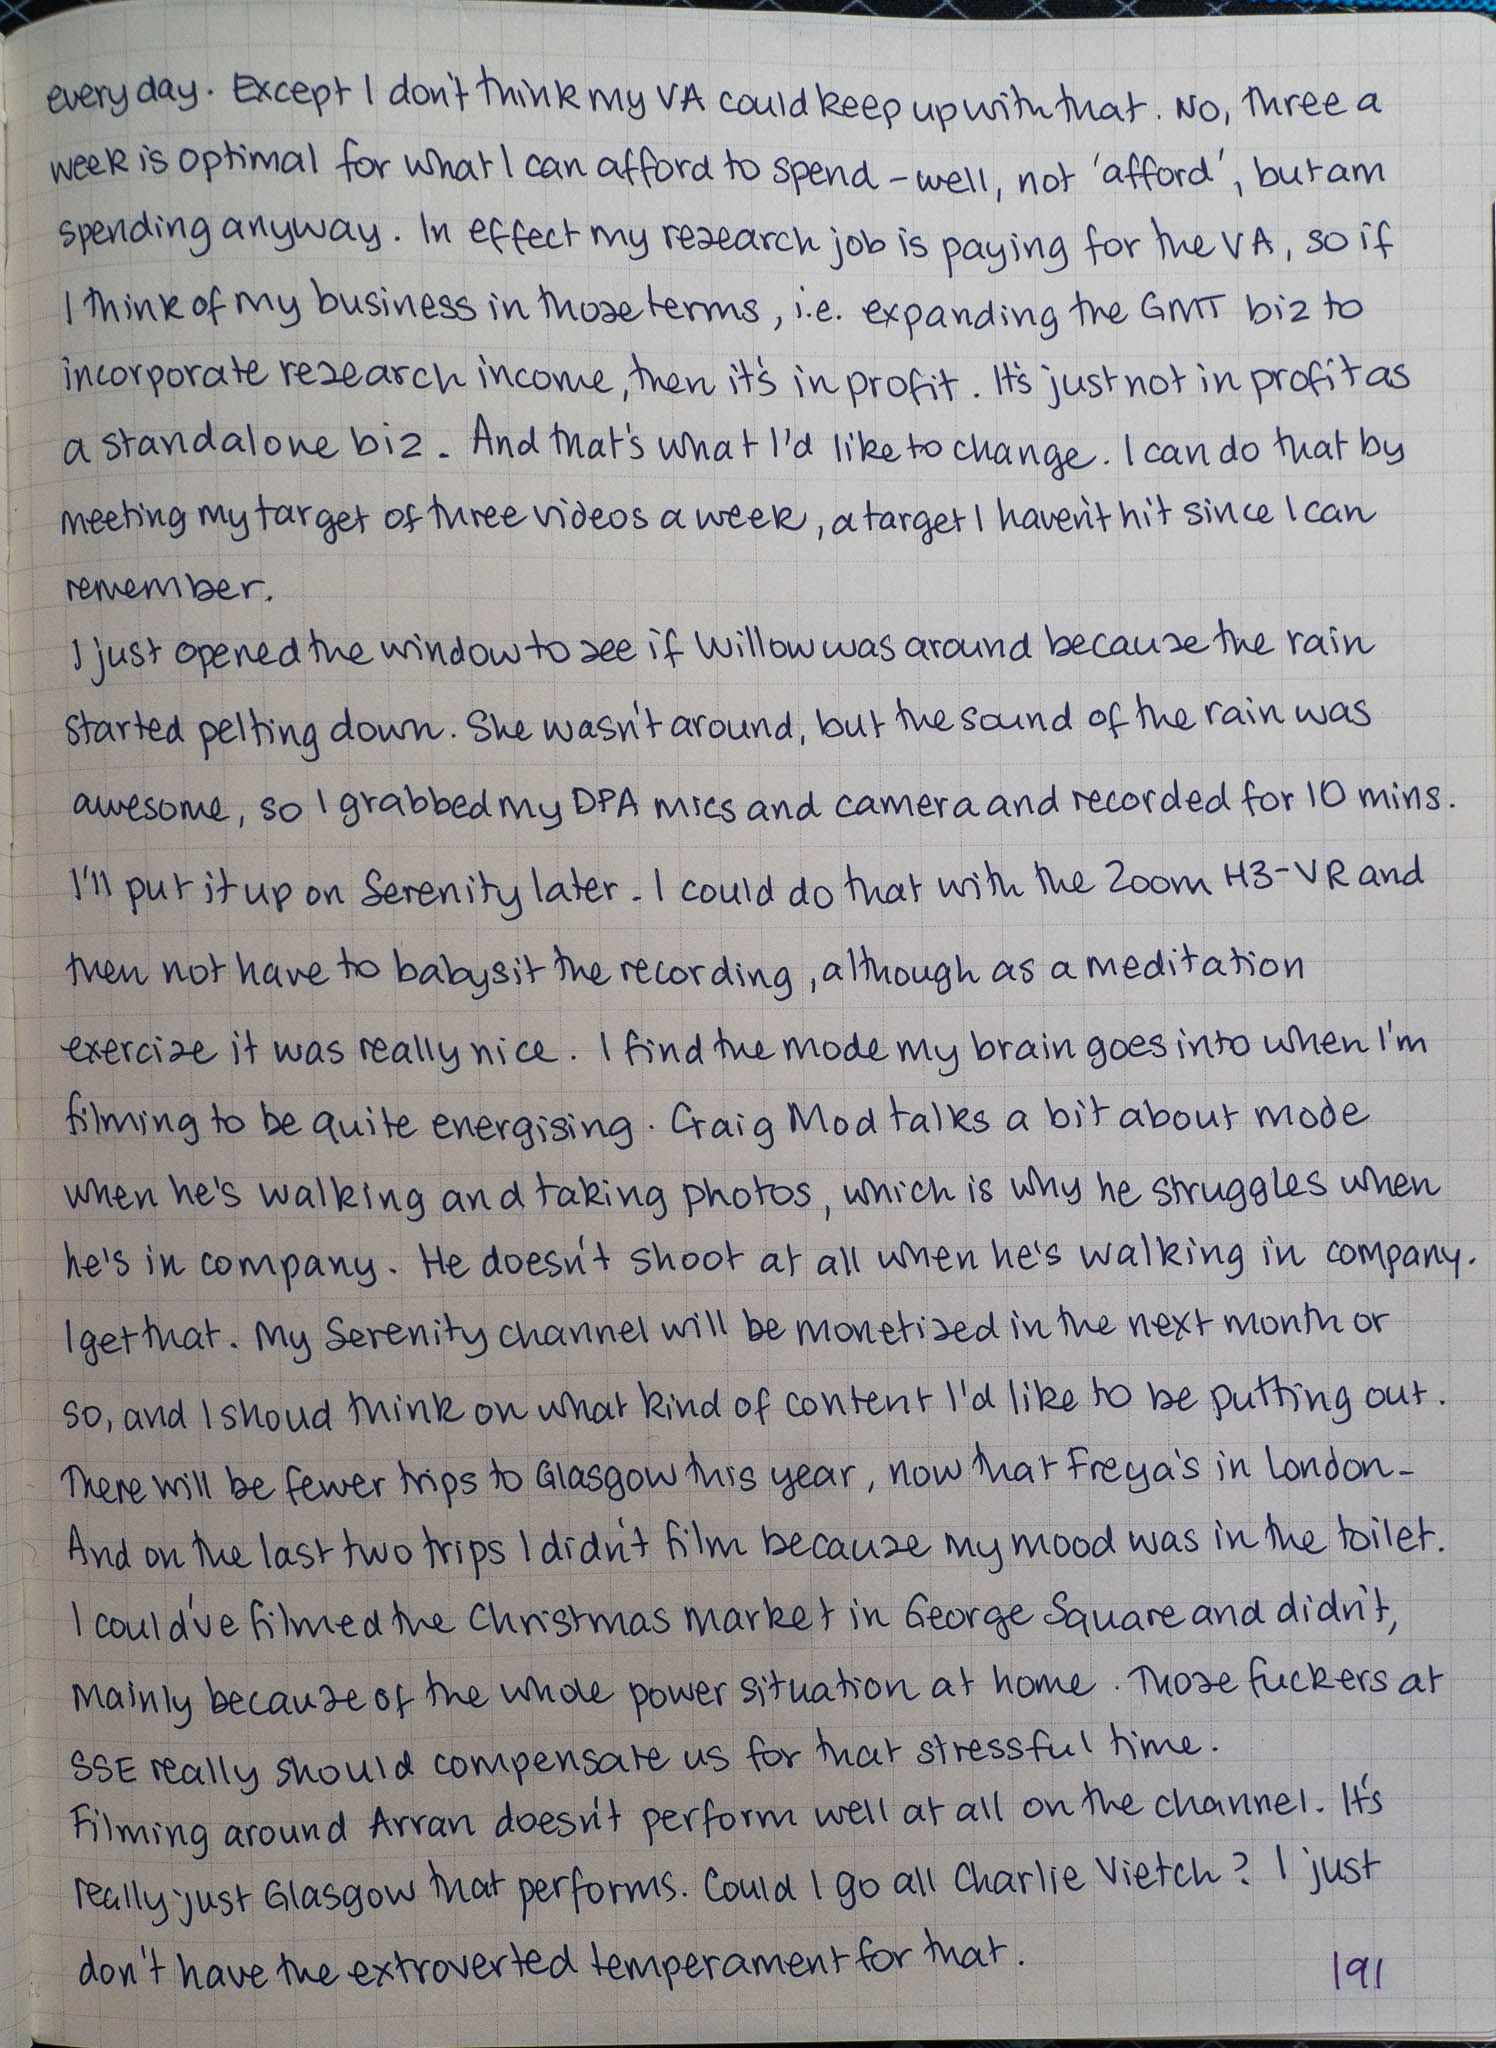 every day. Except I don't think my VA could keep up with that. No, three a
week is optimal for what I can afford to spend – well, not 'afford', but am
spending anyway. In effect my research job is paying for the VA, so if
I think of my business in those terms, i.e. expanding the GMT biz to
incorporate research income, then it's in profit. It's just not in profit as
a standalone biz. And that's what I'd like to change. I can do that by
meeting my target of three videos a week, a target I haven't hit since I can
remember.
I just opened the window to see if Willow was around because the rain
started pelting down. She wasn't around, but the sound of the rain was
awesome, so I grabbed my DPA mics and camera and recorded for 10 mins.
I'll put it up on Serenity later. I could do that with the Zoom H3-VR and
then not have to babysit the recording, although as a meditation
exercise it was really nice. I find the mode my brain goes into when I'm
filming to be quite energising. Craig Mod talks a bit about mode
when he's walking and taking photos, which is why he struggles when
he's in company. He doesn't shoot at all when he's walking in company.
I get that. My Serenity channel will be monetised in the next month or
so, and I shoud think on what kind of content I'd like to be putting out.
There will be fewer trips to Glasgow this year, now that Freya's in London.
And on the last two trips I didn't film because my mood was in the toilet.
I could've filmed the Christmas market in George Square and didn't,
mainly because of the whole power situation at home. Those fuckers at
SSE really should compensate us for that stressful time.
Filming around Arran doesn't perform well at all on the channel. It's
really just Glasgow that performs. Could I go all Charlie Vietch? I just
don't have the extroverted temperament for that.
191